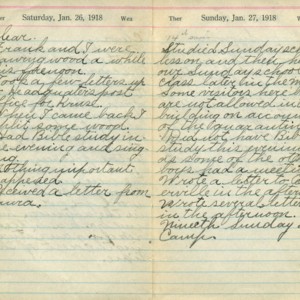 Ther Saturday, Jan. 26, 1918 Wea
lear.
Frank and I were
sawing wood a while
is afternoon.
ook a few letters up
Headquarters post
ffice for
hen I came back I
ut some wood.
ad Bible study in
e evening and sing
ing.
othing important
appened
eceived a letter from
aura.
Ther Sunday, Jan. 27, 1918 Wea
Studied Sunday school
lesson and then h
our Sunday school
class later in
some visitors here
are not allowed in
building on account
of the quarantine
Had not have
study this evening
as some of the old
boys had a meeting
Wrote a letter to
in the
Wrote several letters
in the afternoon.
Sunday
Camp.